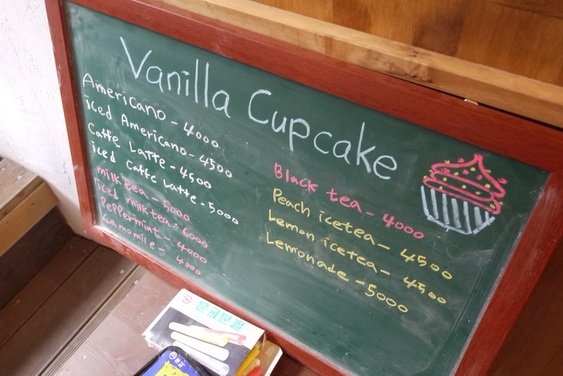 Vanilla Cupcake
Americano - 4000
iced Americano - 4500
Caffe Latte - 4500
iced Caffe Latte - 5000
milk tea - 5000
iced milk tea - 6000
Peppermint - 4000
camomile - 4000
Black tea - 4000
Peach icetea - 4500
Lemon icetea - 4500
Lemonade - 5000
문교분필